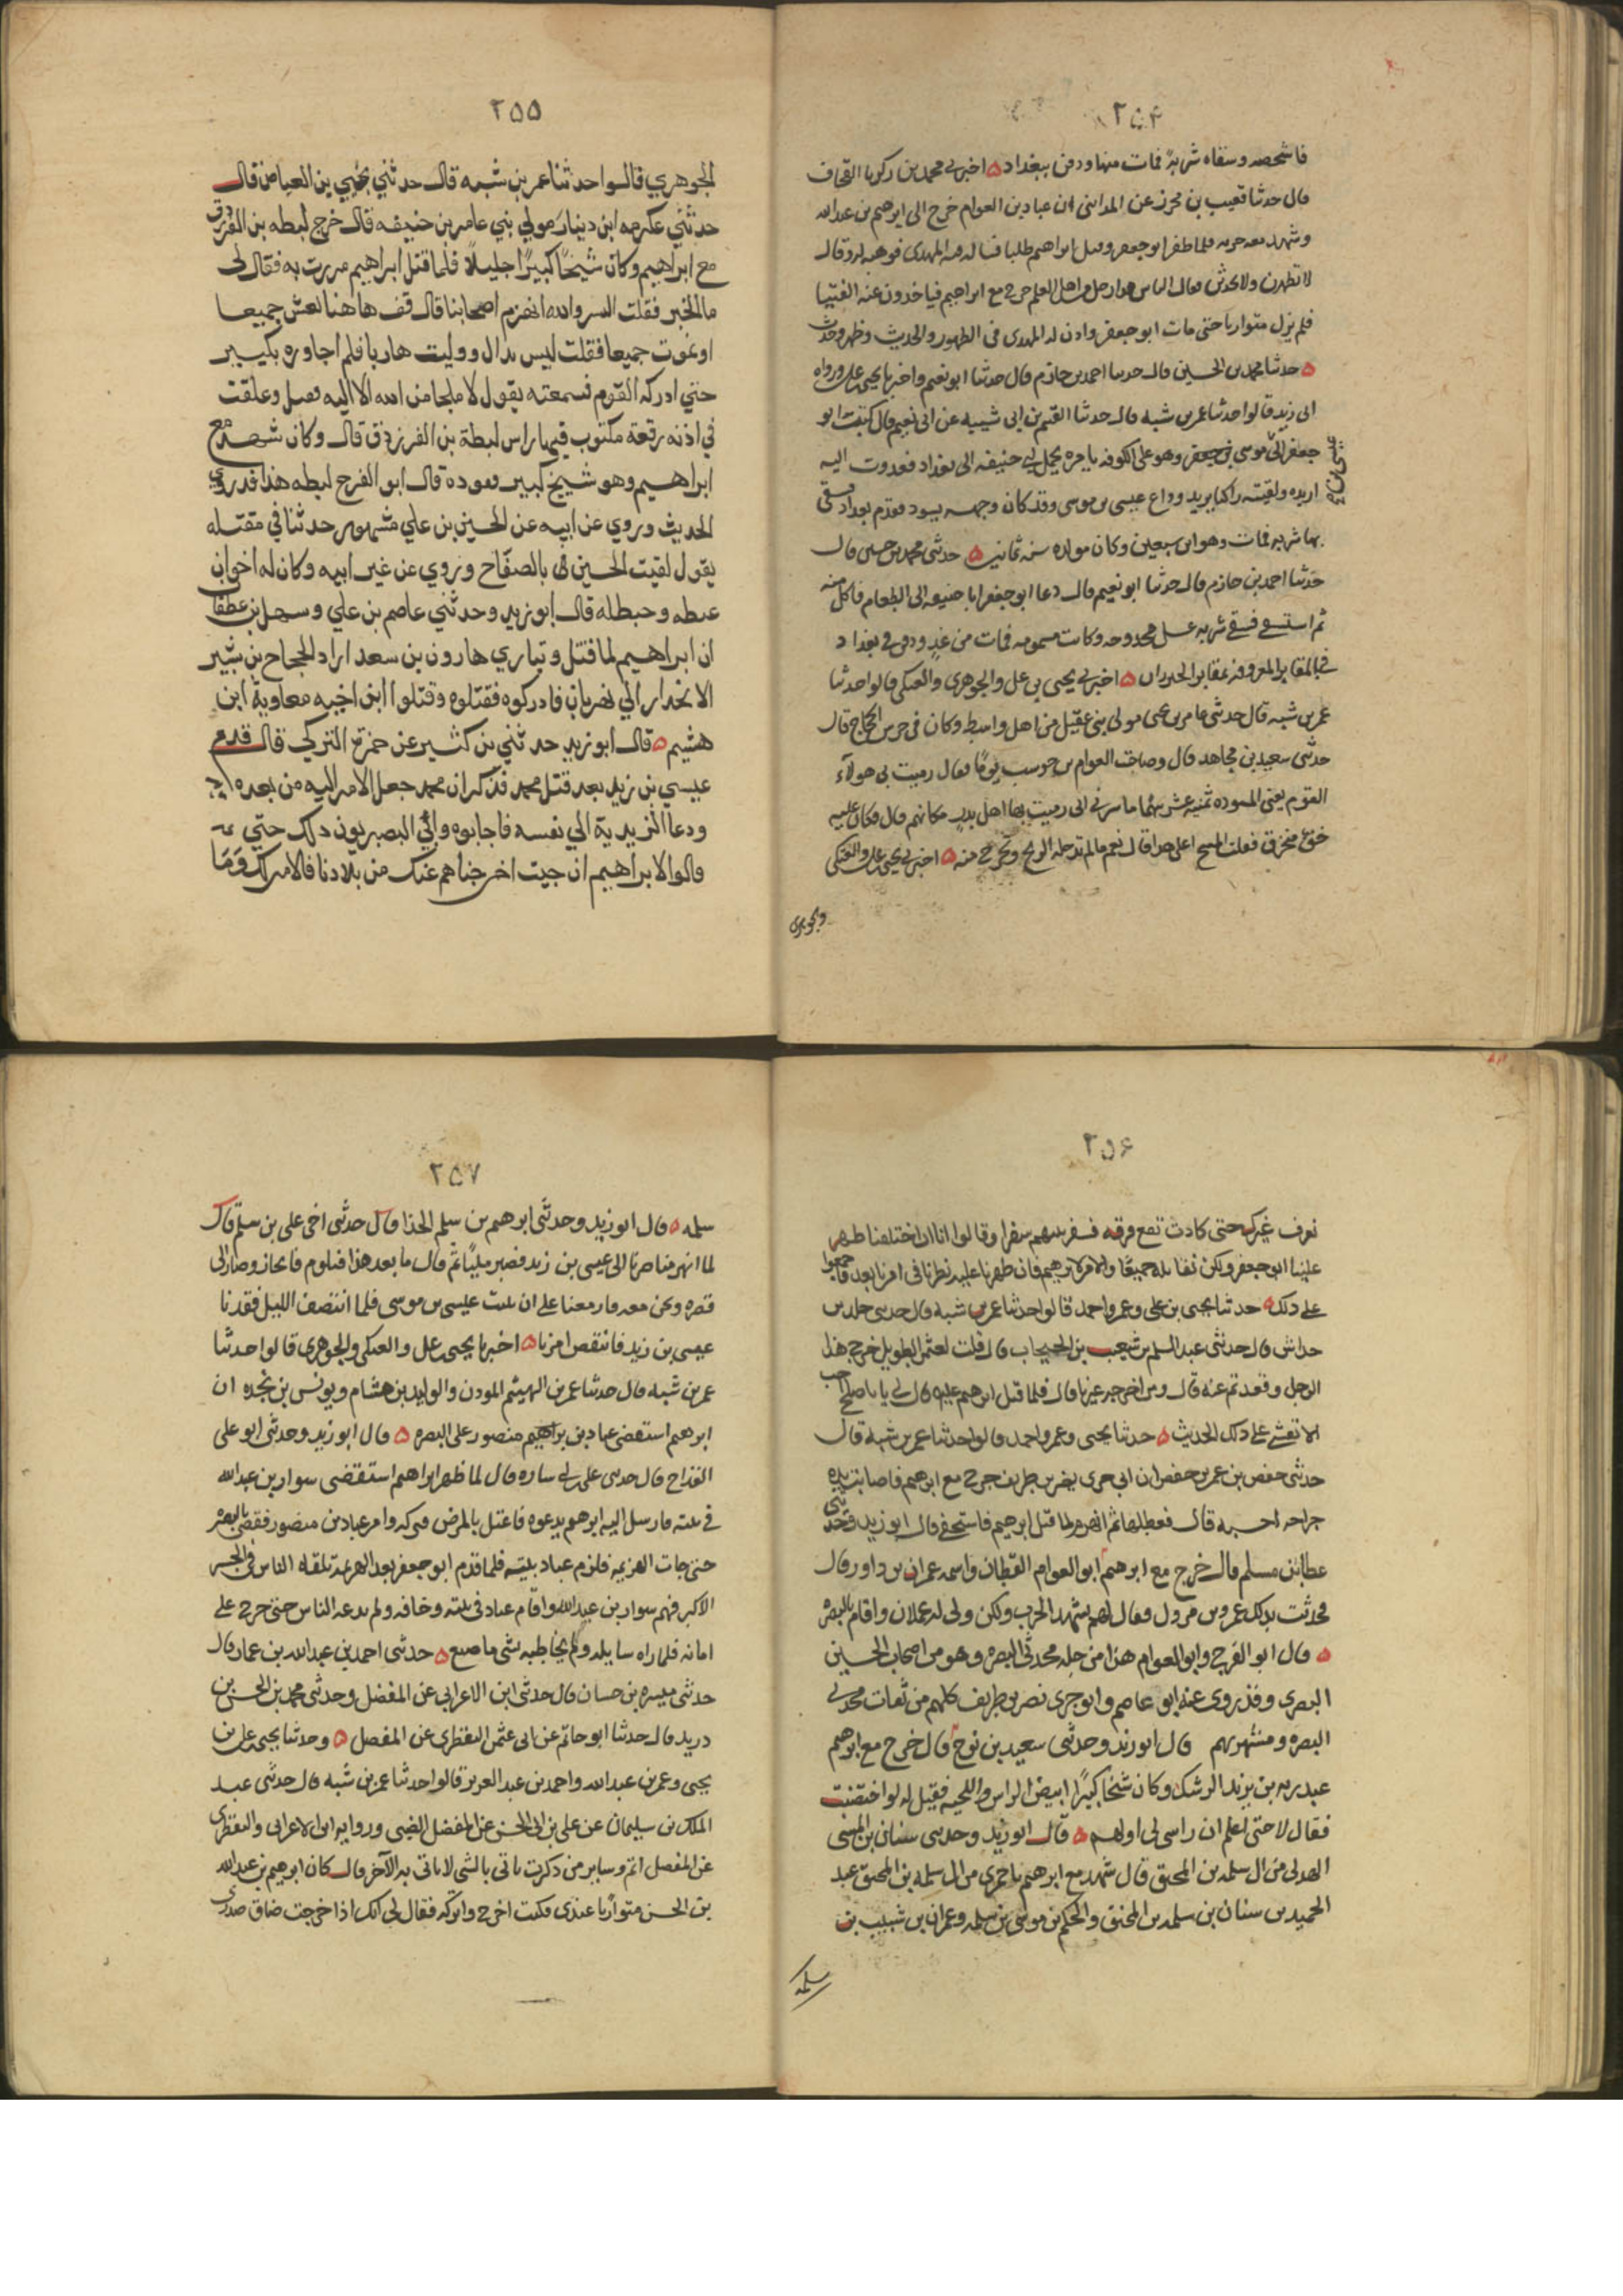 ٢٥٤
فاشخصه وسقاه شربة فمات منها ودفن ببغداد ه اخبرني محمد بن زكريا الصحاف
قال حدثنا قعنب بن محرز عن المدايني ان عباد بن العوام خرج الى ابرهيم بن عبدالله
وشهد معه حربه فلما ظفر ابو جعفر وقتل ابراهيم طلبا فساله فيه المهدي فوهبه له وقال
لا تظهرن ولا تحدثن فقال الناس هذا رجل من اهل العلم خرج مع ابراهيم فياخذون عنه الفتيا
فلم يزل متواريا حتى مات ابو جعفر واذن له المهدي في الظهور والحديث وظهر وحدث
ه حدثنا محمد بن الحسين قال حدثنا احمد بن حازم قال حدثنا ابو نعيم واخبرنا يحيى بن علي ورواه
ابي زيد قالوا حدثنا عمر بن شبه قال حدثنا القسم بن ابي شيبه عن ابي نعيم قال كتب ابو
جعفر الى موسى بن جعفر وهو على الكوفه يامره بحمل ابي حنيفه الى بغداد فغدوت اليه
اريده ولقيته راكبا يريد وداع عيسى بن موسى وقد كان وجهه يسود فقدم بغداد فسقي
بها شربه فمات وهو ابن سبعين وكان مولده سنه ثمانين ه حدثني محمد بن حسين قال
حدثنا احمد بن حازم قال حدثنا ابو نعيم قال دعا ابو جعفر ابا حنيفه الى الطعام فاكل منه
ثم استسقى فسقي شربه عسل مجدوحه وكانت مسمومه فمات من غد ودفن في بغداد
في المقابر المعروفه بمقابر الخيزران ه اخبرني يحيى بن علي والجوهري والعتكي قالوا حدثنا
عمر بن شبه قال حدثني عامر بن يحيى مولى بني عقيل من اهل واسط وكان في حرس الحجاج قال
حدثني سعيد بن مجاهد قال وصاحبت العوام بن حوشب يوما فقال رميت في هولاء
القوم يعني المسوده ثمنيه عشر سهما ما سرني اني رميت بها اهل بدر مكانهم قال فكان عليه
خف مخرق فقلت امسح على هذا قال نعم ما لم تدخله الريح وتخرج منه ه اخبرني يحيى بن علي والعتكي
والجوهري
٢٥٥
الجوهري قالوا حدثنا عمر بن شبه قال حدثني يحيي بن العباض قال
حدثني عكرمه ابن دينار مولي بني عامر بن حنيفه قال خرج لبطه بن الفرزدق
مع ابراهيم وكان شيخا كبيرا جليلا فلما قتل ابراهيم مررت به فقال لي
ما الخبر فقلت السر والله انهزم اصحابنا قال قف هاهنا نعش جميعا
او نموت جميعا فقلت ليس بذال ووليت هاربا فلم اجاوزه بكبير
حتي ادركه القوم فسمعته يقول لا ملجا من الله الا اليه فقتل وعلقت
في اذنه رقعة مكتوب فيها راس لبطة بن الفرزدق قال وكان شهد مع
ابراهيم وهو شيخ كبير يعوده قال ابو الفرج لبطه هذا قد روي
الحديث وروي عن ابيه عن الحسين بن علي مشهور حدثنا في مقتله
يقول لقيت الحسين في بالصفاح وروي عن غير ابيه وكان له اخوان
عبطه وحبطله قال ابو زيد وحدثني عاصم بن علي وسهل بن عطفا
ان ابراهيم لما قتل وتباري هارون بن سعد اراد الحجاح بن بشير
الانحدار الي نهربان فادركوه فقتلوه وقتلوا ابن اخيه معاوية ابن
هشيم ه قال ابو زيد حدثني بن كثير عن حمزة التركي قال قدم
عيسي بن زيد بعد قتل محمد فذكر ان محمد جعل الامر اليه من بعده
ودعا الزيدية الي نفسه فاجابوه وابي البصريون ذلك حتي
قالوا لابراهيم ان جيت اخرجناهم عنك من بلادنا فالامر لك وما
٢٥٦
نعرف غيرك حتى كادت تقع فرقه فسفر بينهم سفرا وقالوا انا ان اختلفنا ظهر
علينا ابو جعفر ولكن نقاتله جميعا والامر لابرهيم فان ظهرنا عليه نظرنا في امرنا بعد فاجمعوا
على ذلك ه حدثنا يحيى بن علي وعمر واحمد قالوا حدثنا عمر بن شبه قال حدثني خلد بن
خداش قال حدثني عبد السلم بن شعيب بن الحبحاب قال قلت لعثمن الطويل خرج هذا
الرجل وقعدتم عنه قال ومن اخرجه غيرنا قال فلما قتل ابرهيم عليه قال لي يا با صلح احب
الا تفشي على ذلك الحديث ه حدثنا يحيى وعمر واحمد قالوا حدثنا عمر بن شبه قال
حدثني حفص بن عمر بن حفص ان ابي جرى نصر بن طريف خرج مع ابرهيم فاصابت يده
جراحه قال فعطلها ثم انهزم لما قتل ابرهيم فاستخفى قال ابو زيد وحدثني
عطا بن مسلم قال خرج مع ابرهيم ابو العوام القطان واسمه عمران بن داور قال
فحدثت بذلك عمرو بن مرزوق فقال لم يشهد الحرب ولكن ولي له عملا واقام بالبصره
ه قال ابو الفرج وابو العوام هذا من جله محدثي البصره وهو من اصحاب الحسن
البصري وقد روى عنه ابو عاصم وابو جرى نصر بن طريف كلهم من ثقات محدثي
البصره ومشهوريهم قال ابو زيد وحدثني سعيد بن نوح قال خرج مع ابرهيم
عبد ربه بن يزيد الرشك وكان شيخا كبيرا ابيض الراس واللحيه فقيل له لو اختضبت
فقال لا حتى اعلم ان راسي لي او لهم ه قال ابو زيد وحدثني سنان بن المثنى
الهذلي من ال سلمه بن المحبق قال شهد مع ابرهيم باخمرى من ال سلمه بن المحبق عبد
الحميد بن سنان بن سلمه بن المحبق والحكم بن موسى بن سلمه وعمران بن شبيب بن
سلمه
٢٥٧
سلمه ه قال ابو زيد وحدثني ابرهيم بن سلم الحذا قال حدثني اخي علي بن سلم قال
لما انهزمنا صرنا الى عيسى بن زيد فصبر مليا ثم قال ما بعد هذا متلوم فانحاز وصار الى
قصره ونحن معه فازمعنا على ان نبيت عيسى بن موسى فلما انتصف الليل فقدنا
عيسى بن زيد فانتقض امرنا ه اخبرنا يحيى بن علي والعتكي والجوهري قالوا حدثنا
عمر بن شبه قال حدثنا عمر بن الهيثم المودن والوليد بن هشام ويونس بن نجده ان
ابرهيم استقضى عباد بن منصور على البصره ه قال ابو زيد وحدثني ابو علي
القداح قال حدثني علي بن ابي ساره قال لما ظهر ابراهيم استقضى سوار بن عبدالله
في بيته فارسل اليه ابرهيم يدعوه فاعتل بالمرض فتركه وامر عباد بن منصور فقضى بالبصره
حتى جات الهزيمه فلزم عباد بيته فلما قدم ابو جعفر بعد الهزيمه تلقاه الناس في الجسر
الاكبر فيهم سوار بن عبدالله واقام عباد في بيته وخافه ولم يدعه الناس حتى خرج على
امانه فلما راه سايله ولم يخاطبه بشي مما صنع ه حدثني احمد بن عبد الله بن عمار قال
حدثني ميسره بن حسان قال حدثني ابن الاعرابي عن المفضل وحدثني محمد بن الحسن بن
دريد قال حدثنا ابو حاتم عن ابي عثمن اليقطري عن المفضل ه وحدثنا يحيى بن علي بن
يحيى وعمر بن عبد الله واحمد بن عبد العزيز قالوا حدثنا عمر بن شبه قال حدثني عبد
الملك بن سليمان عن علي بن ابي الحسن عن المفضل الضبي ورواية ابن الاعرابي واليقطري
عن المفضل اتم وساير من ذكرت ياتي بالشي لا ياتي به الاخر قال كان ابرهيم بن عبدالله
بن الحسن متواريا عندي فكنت اخرج واتركه فقال لي انك اذا خرجت ضاق صدري